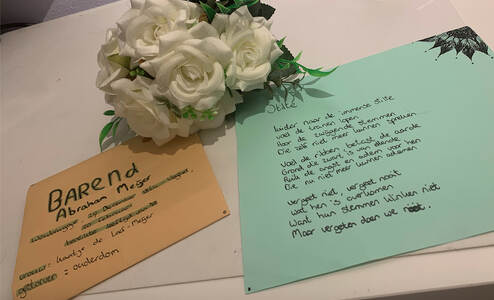 BAREND
Abraham Meijer
vrouw: Kaatje de Leef-Meijer
gestorven = ouderdom
Stilte
Luister naar de immense stilte
voel de tranen lopen
Hoor de zwijgende stemmen
Die zelf niet meer kunnen spreken
Voel de ribben, betast de aarde
Grond die zwart is van ellende
Ruik de angst en adem voor hen
Die nu niet meer kunnen ademen
vergeet niet, vergeet nooit
wat hen is overkomen
Want hun stemmen klinken niet
Maar vergeten doen we nooit.